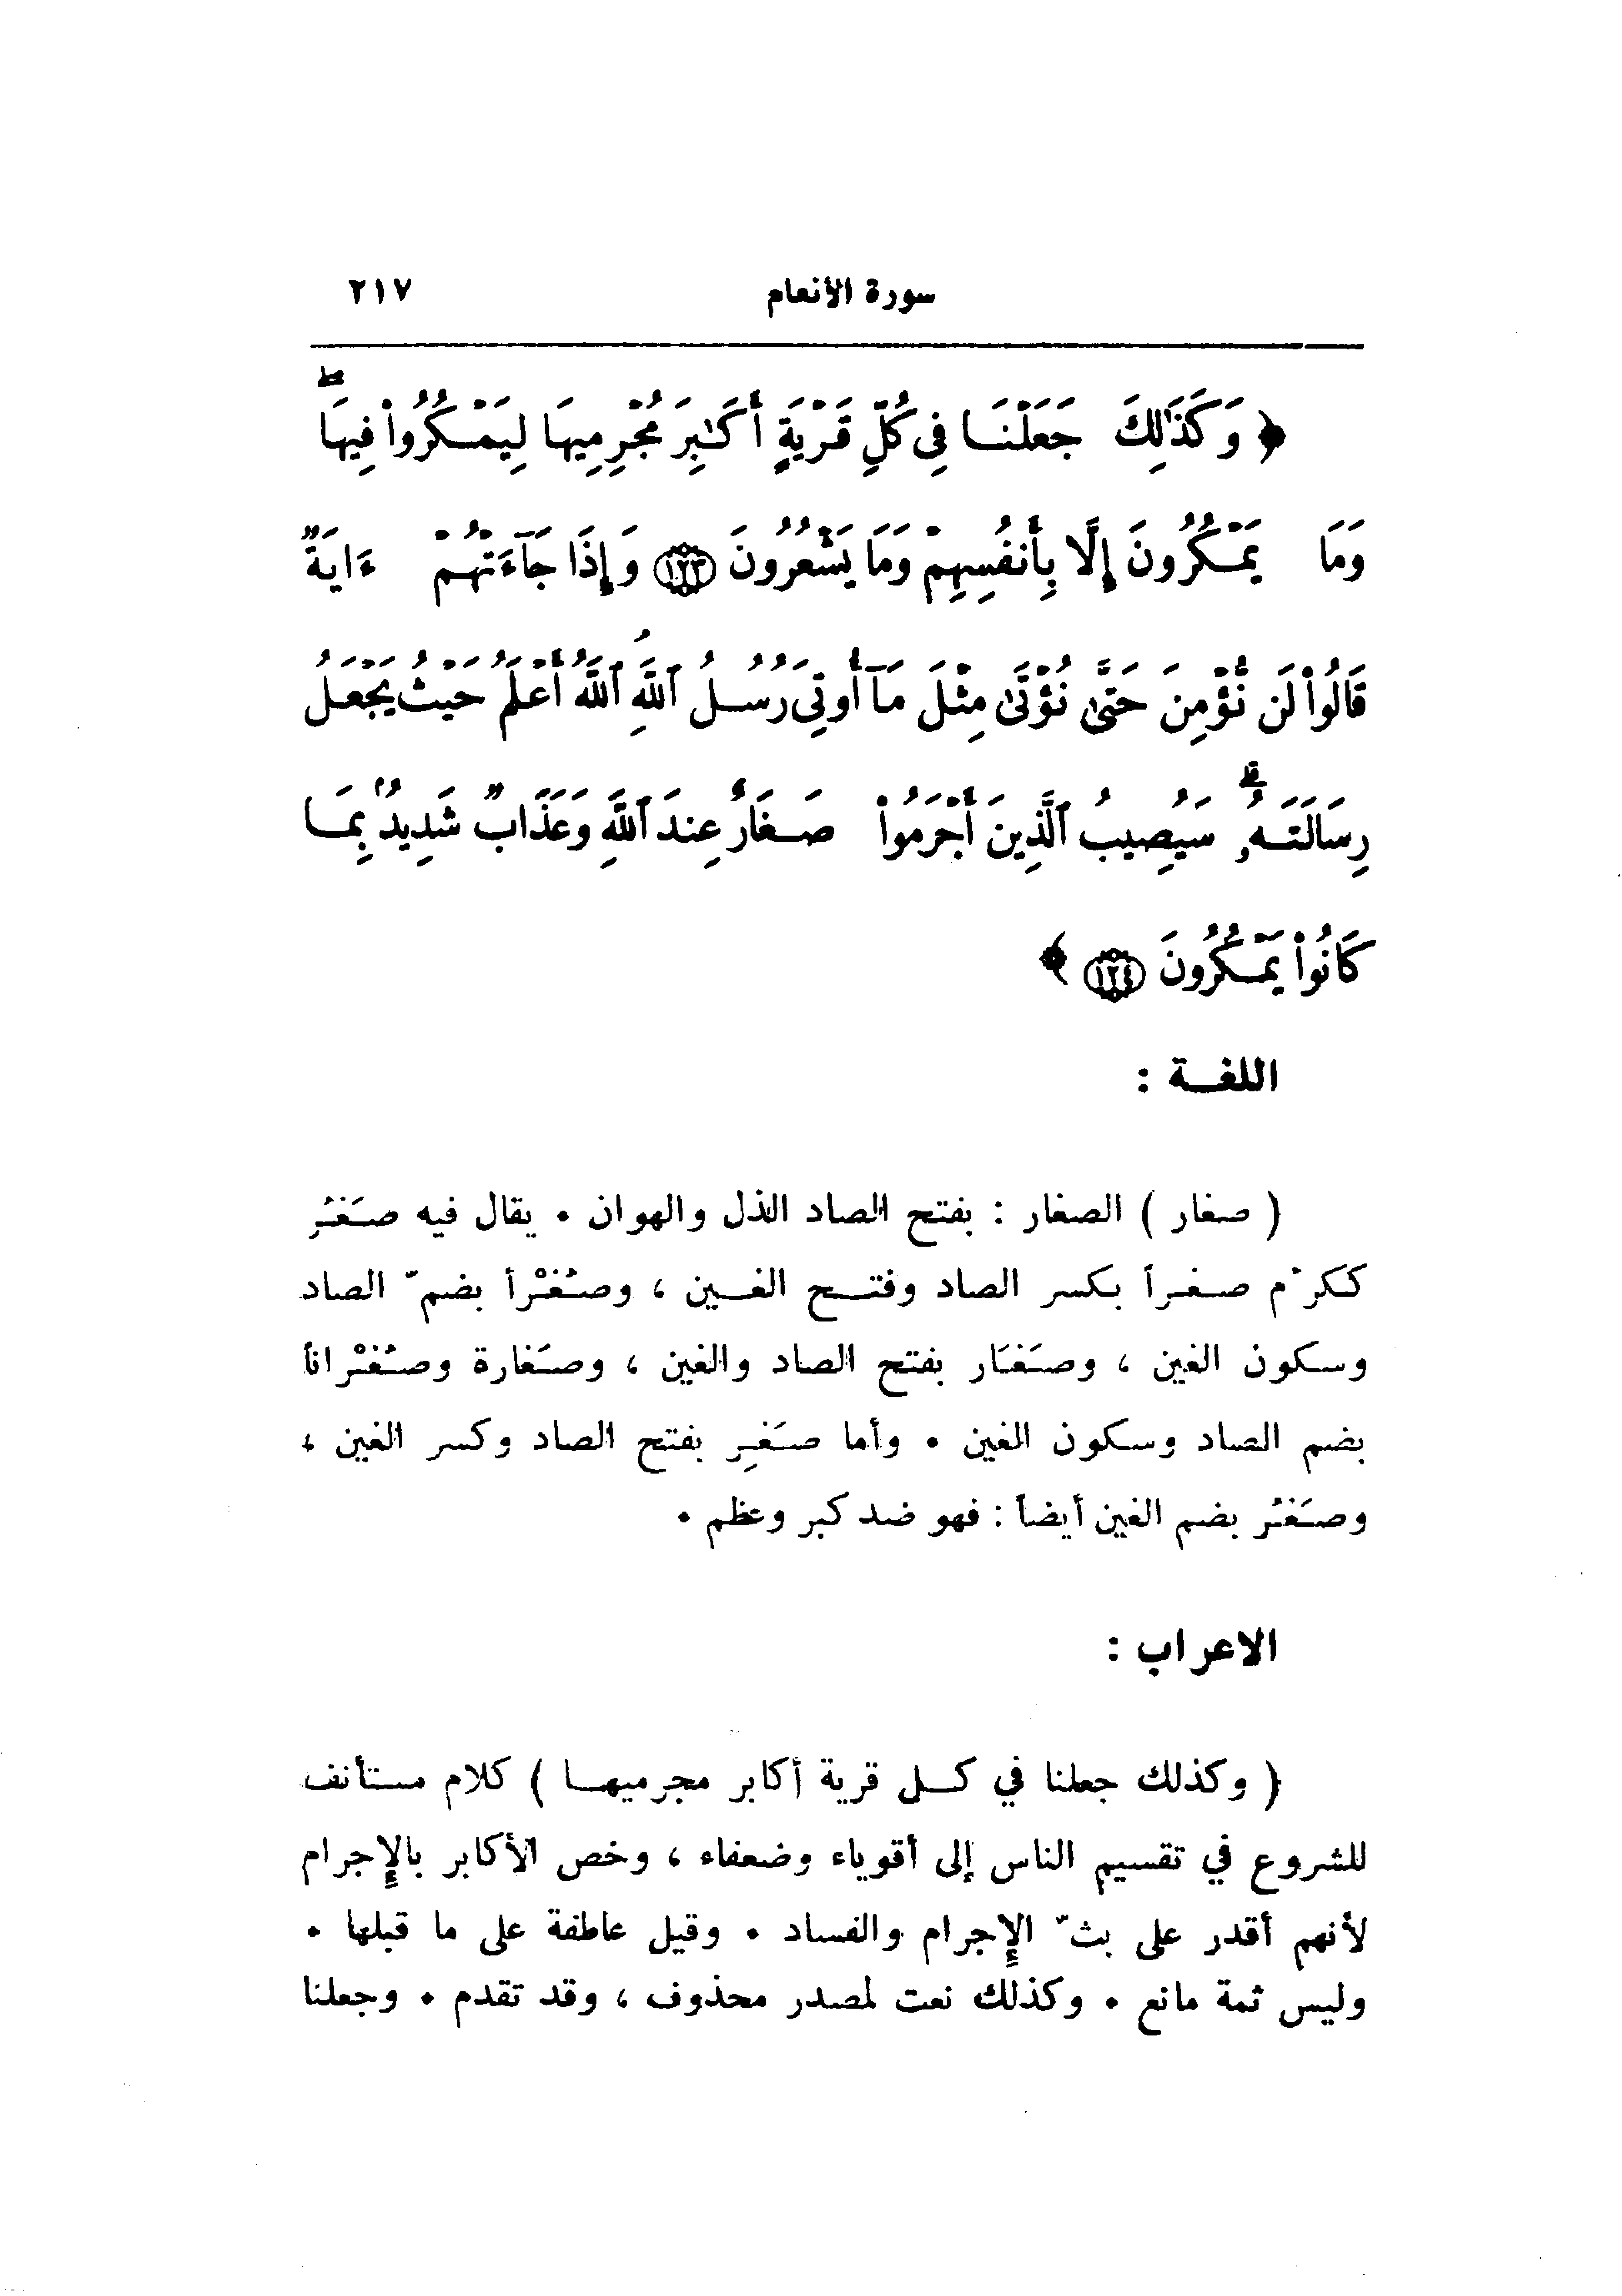 سورة الأنعام ٢١٧
﴿ وَكَذَٰلِكَ جَعَلْنَا فِي كُلِّ قَرْيَةٍ أَكَٰبِرَ مُجْرِمِيهَا لِيَمْكُرُوا۟ فِيهَا ۖ
وَمَا يَمْكُرُونَ إِلَّا بِأَنفُسِهِمْ وَمَا يَشْعُرُونَ ١٢٣ وَإِذَا جَآءَتْهُمْ ءَايَةٌ
قَالُوا۟ لَن نُّؤْمِنَ حَتَّىٰ نُؤْتَىٰ مِثْلَ مَآ أُوتِيَ رُسُلُ ٱللَّهِ ٱللَّهُ أَعْلَمُ حَيْثُ يَجْعَلُ
رِسَالَتَهُۥ ۗ سَيُصِيبُ ٱلَّذِينَ أَجْرَمُوا۟ صَغَارٌ عِندَ ٱللَّهِ وَعَذَابٌ شَدِيدٌۢ بِمَا
كَانُوا۟ يَمْكُرُونَ ١٢٤ ﴾
اللغة :
( صغار ) الصغار : بفتح الصاد الذل والهوان . يقال فيه صَغُر
ككرُم صغراً بكسر الصاد وفتح الغين ، وصُغْراً بضمّ الصاد
وسكون الغين ، وصَغَار بفتح الصاد والغين ، وصَغارة وصُغْراناً
بضم الصاد وسكون الغين . وأما صَغِر بفتح الصاد وكسر الغين ،
وصَغُر بضم الغين أيضاً : فهو ضد كبر وعظم .
الاعراب :
( وكذلك جعلنا في كل قرية أكابر مجرميها ) كلام مستأنف
للشروع في تقسيم الناس إلى أقوياء وضعفاء ، وخص الأكابر بالإجرام
لأنهم أقدر على بثّ الإجرام والفساد . وقيل عاطفة على ما قبلها .
وليس ثمة مانع . وكذلك نعت لمصدر محذوف ، وقد تقدم . وجعلنا